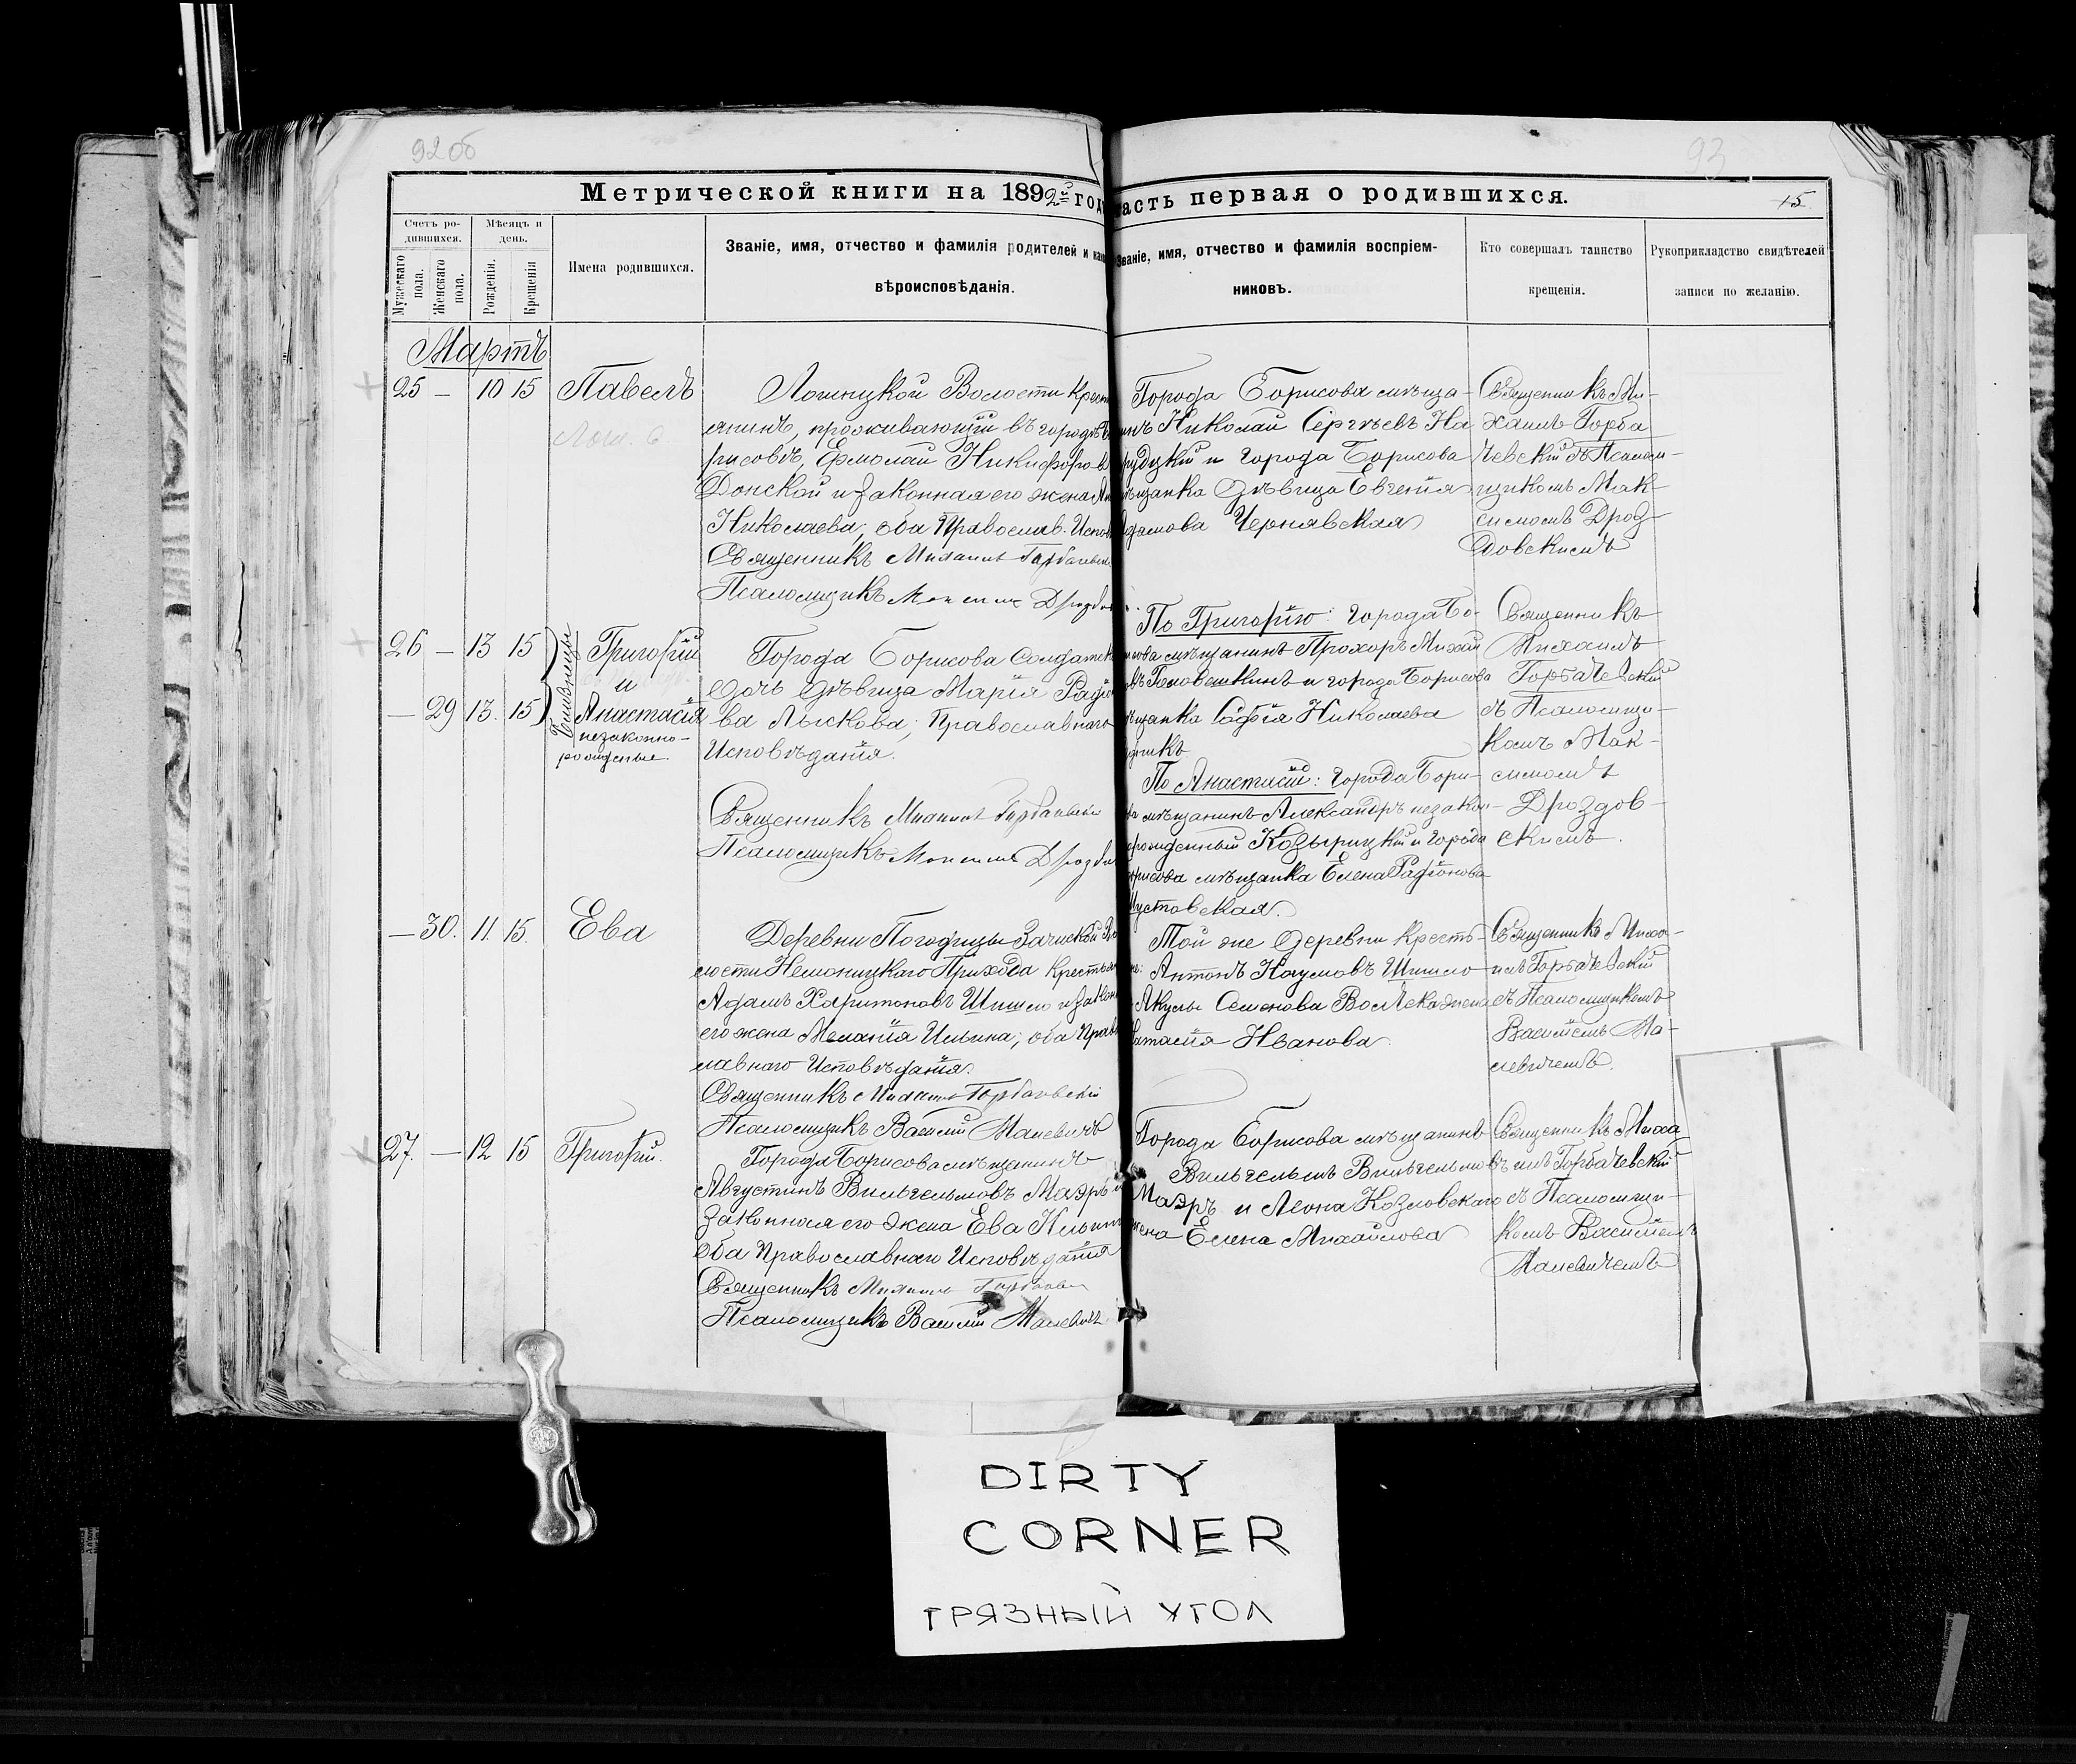 92об
93
Метрической книги на 1892й год
часть первая о родившихся.
15
Счетъ ро-
дившихся.
Мѣсяцъ и
день.
Мужескаго
пола.
Женскаго
пола.
Рожденія.
Крещенія
Имена родившихся.
Званіе, имя, отчество и фамилія родителей и
вѣроисповѣданія.
Званіе, имя, отчество и фамилія воспріем-
никовъ.
Кто совершалъ таинство
крещенія.
Рукоприкладство свидѣтелей
записи по желанію.
Мартъ
25 – 10 15 Павелъ
Лошницкой Волости Крест
янинъ, проживающій въ городѣ Бо
рисовѣ, Ермолай Никифоров
Донской и законная его жена
Николаева, оба Православ. Испов
Священникъ Михаилъ Горбачевск
Псаломщикъ Максимъ Дроздо
Города Борисова мѣща-
инъ Николай Сергѣевъ На
рудzкій и города Борисова
ѣщанка дѣвица Евгенія
дамова Чернявская
Священникъ Ми-
хаилъ Горба
чевскій съ Псалом-
щикомъ Мак-
симомъ Дроз-
довскимъ
26 – 13 15 Григорій
и
– 29 13. 15 Анастасія
Близнецы
незаконно-
рожденые.
Города Борисова Солдатск
дочь дѣвица Марія Радіо
ва Лыскова, Православнаго
Исповѣданія.
Священникъ Михаилъ Горбачевскій
Псаломщикъ Максимъ Дроздо
По Григорію: Города Бо-
исова мѣщанинъ Прохоръ Михай
и города Борисова
ѣщанка Софія Николаева
По Анастасіи: города Бори-
мѣщанинъ Александръ незакон-
рожденный Козырицкій и города
рисова мѣщанка Елена Радіонова
Шустовская.
Священникъ
Михаилъ
Горбачевскій
съ Псаломщи-
комъ Мак-
симомъ
Дроздов-
скимъ.
– 30. 11. 15. Ева
Деревни Погодрицы Зачиской Во
лости Немоницкаго Прихода Крестьян
Адамъ Харитоновъ Шишло и закон
его жена Меланія Ильина, оба Прав
лавнаго Исповѣданія.
Священникъ Михаилъ Горбачевскій
Псаломщикъ Василій Малевичъ
Той же деревни Кресть-
Антонъ Наумовъ Шишло
Акулы Семенова Волчека жена
Иванова
Священникъ Миха-
илъ Горбачевскій
съ Псаломщикомъ
Василіемъ Ма-
левичемъ.
27. – 12 15 Григорій.
Города Борисова мѣщанинъ
Августинъ Вильгельмовъ Маэръ и
законная его жена Ева Ильин
оба Православнаго Исповѣданія
Священникъ Михаилъ Горбачев
Псаломщикъ Василій Малевичъ.
Города Борисова мѣщанинъ
Вильгельмъ Вильгельмовъ
Маэръ и Леона Козловскаго
жена Елена Михайлова
Священникъ Миха
илъ Горбачевскій
съ Псаломщи-
комъ Василіемъ
Малевичемъ
DIRTY
CORNER
ГРЯЗНЫЙ УГОЛ